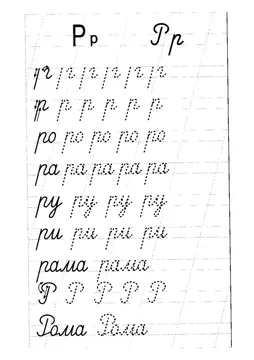 Рр Рр
р р р р р р
ро ро ро ро ро
ра ра ра ра ра
ру ру ру ру
ри ри ри ри
рама рама
Р Р Р Р Р
Рома Рома